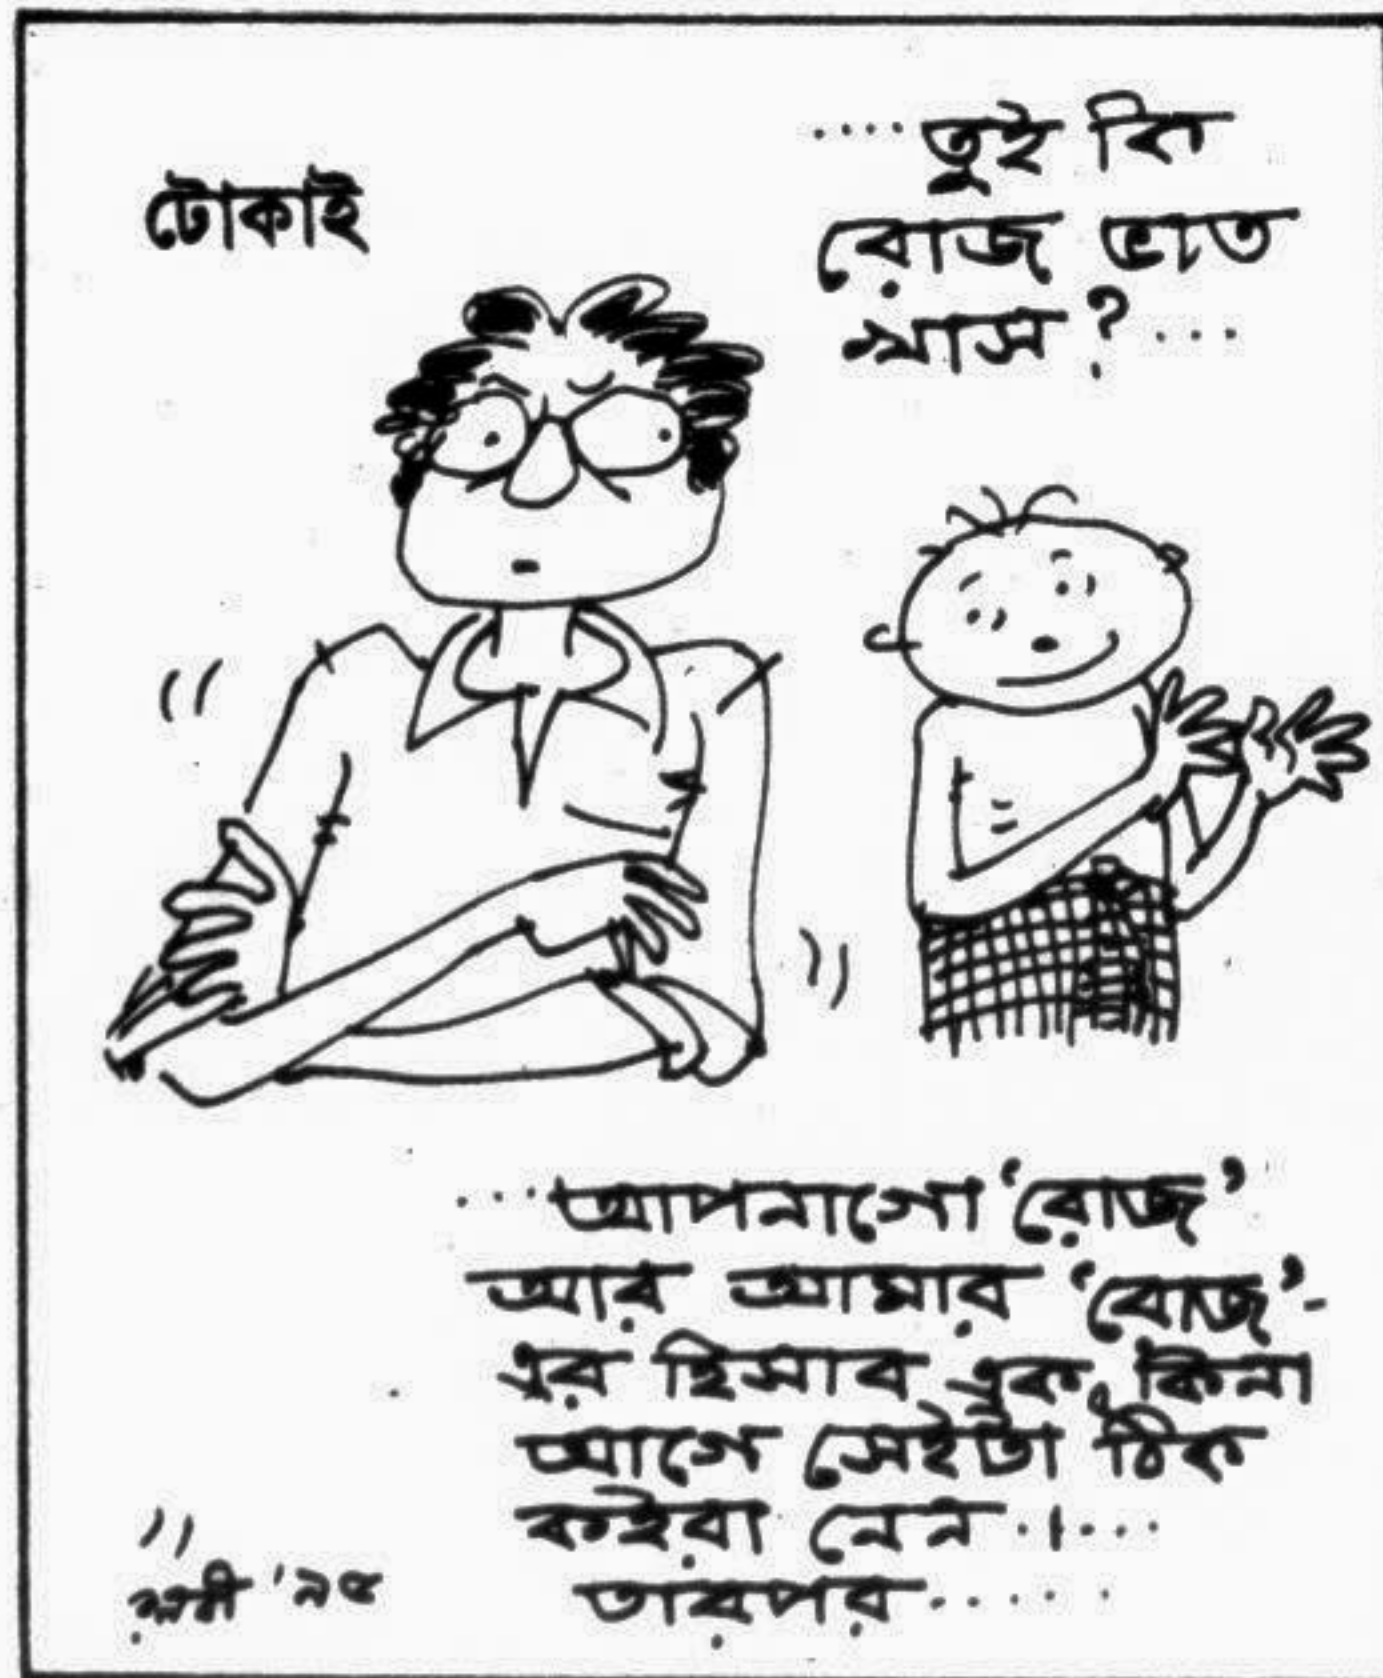 টোকাই
....তুই কি
রোজ ভাত
খাস ?...
...আপনাগো ‘রোজ’
আর আমার ‘রোজ’-
এর হিসাব এক কিনা
আগে সেইটা ঠিক
কইরা নেন.।...
তারপর.....
রনবী '৯৫